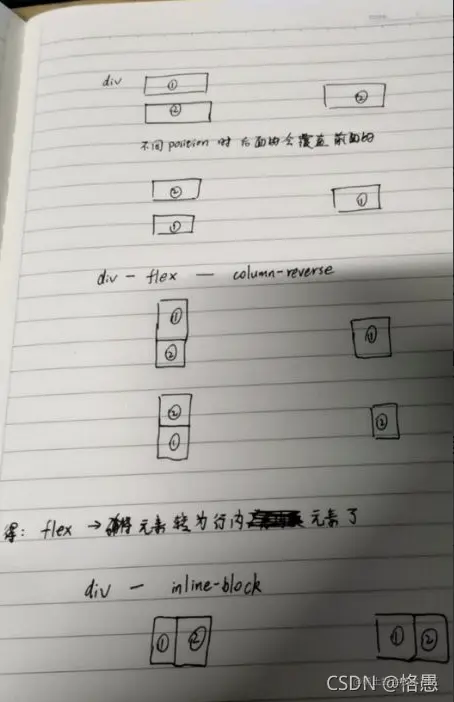 div ①
② ②
不同position时后面的会覆盖前面的
② ①
①
div - flex — column-reverse
①
② ①
②
① ②
得: flex → 将元素转为行内 元素了
div — inline-block
① ② ① ②
CSDN @恪愚